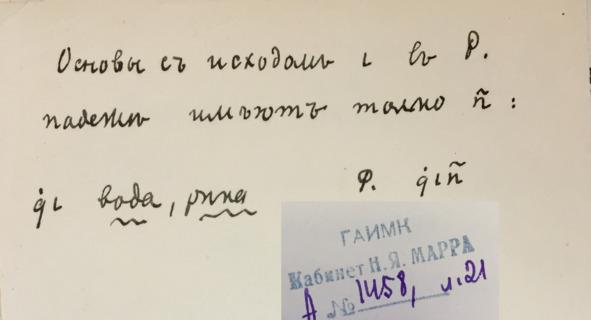 Основы съ исходомъ ι въ Р.
падежѣ имѣютъ только ñ :
q̇ι вода, рѣка Р. q̇ιñ
ГАИМК
Кабинет Н.Я. МАРРА
А № 1458, л.21